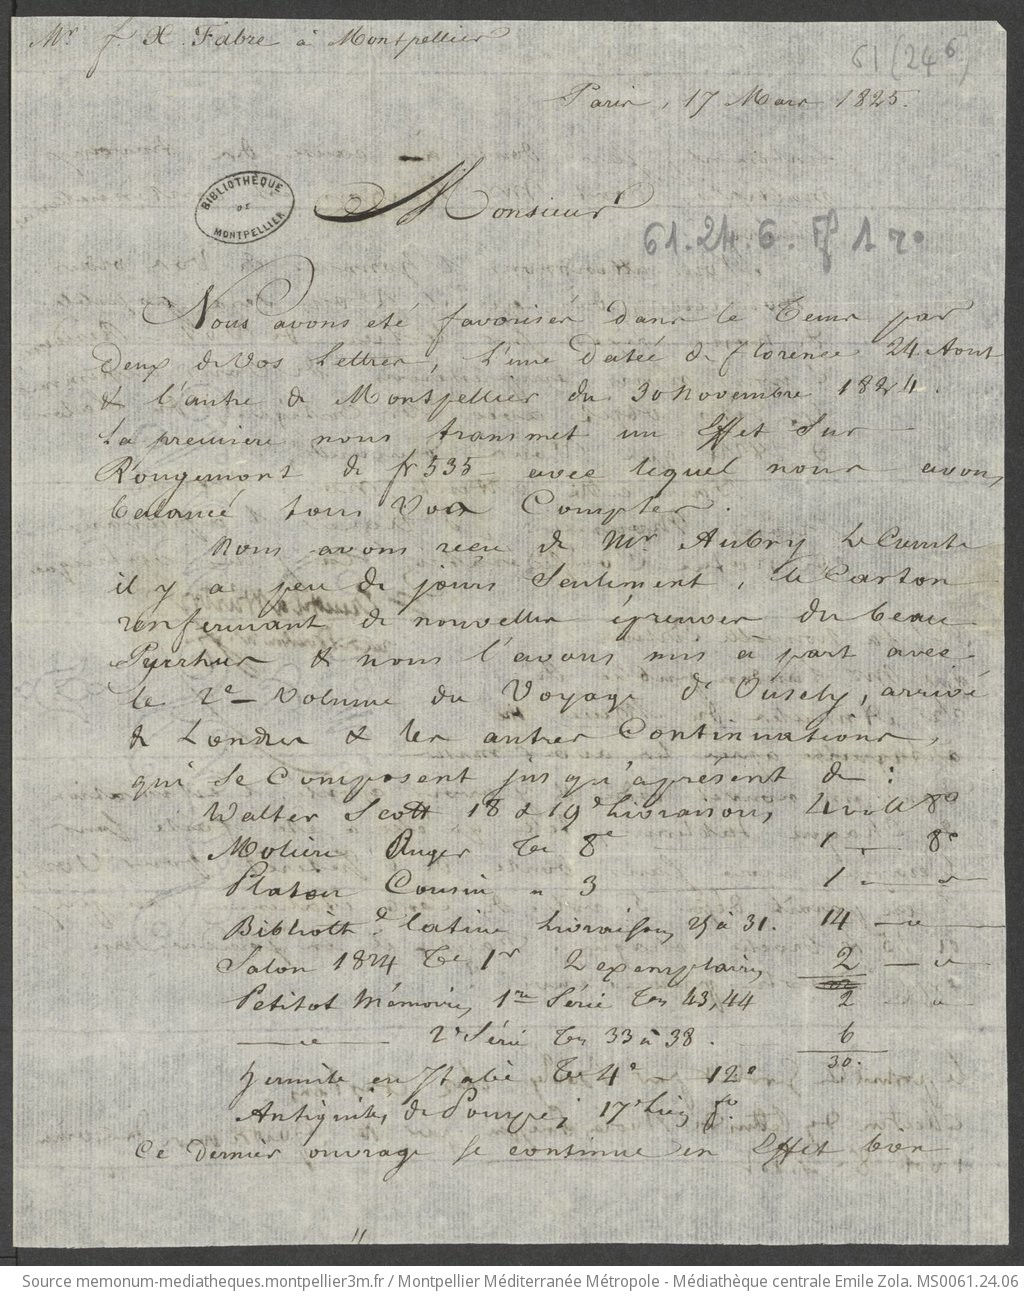 Mr. f. X. Fabre à Montpellier
61(246)
Paris, 17 Mars 1825.
BIBLIOTHÈQUE
DE
MONTPELLIER
Monsieur
61.24.6. f 1 ro
Nous avons eté favorisés dans le Tems par
deux de Vos Lettres, l'une datée de florence 24 Aout
& l'autre de Montpellier du 30 Novembre 1824.
La premiere nous transmet un Effet Sur
Rougemont de fr 535 avec lequel nous avons
balancé tous Vos Comptes.
Nous avons reçu de Mr Aubry LeComte
il y a peu de jours Seulement, le Carton
renfermant de nouvelles épreuves du beau
Pyrrhus & nous l'avons mis à part avec
le 2e Volume du Voyage d'Ouseley, arrivé
de Londres & les autres Continuations,
qui Se Composent jusqu'apresent de :
Walter Scott 18 & 19e Livraisons, 4 vol 8o
Moliere Auger Te 8e 1 — 8o
Platon Cousin " 3 1 — "
Biblioth.e latine Livraisons 25 à 31. 14 — "
Salon 1824 Te 1r 2 exemplaires 2 — "
Petitot Mémoires 1re Série Tes 43,44 2 — "
— " — 2e Série Tes 33 à 38. 6
30.
hermite en Italie Te 4e 12o
Antiquités de Pompei 17e Liv. fo.
Ce dernier ouvrage Se continue en Effet bien
Source memonum-mediatheques.montpellier3m.fr / Montpellier Méditerranée Métropole - Médiathèque centrale Emile Zola. MS0061.24.06